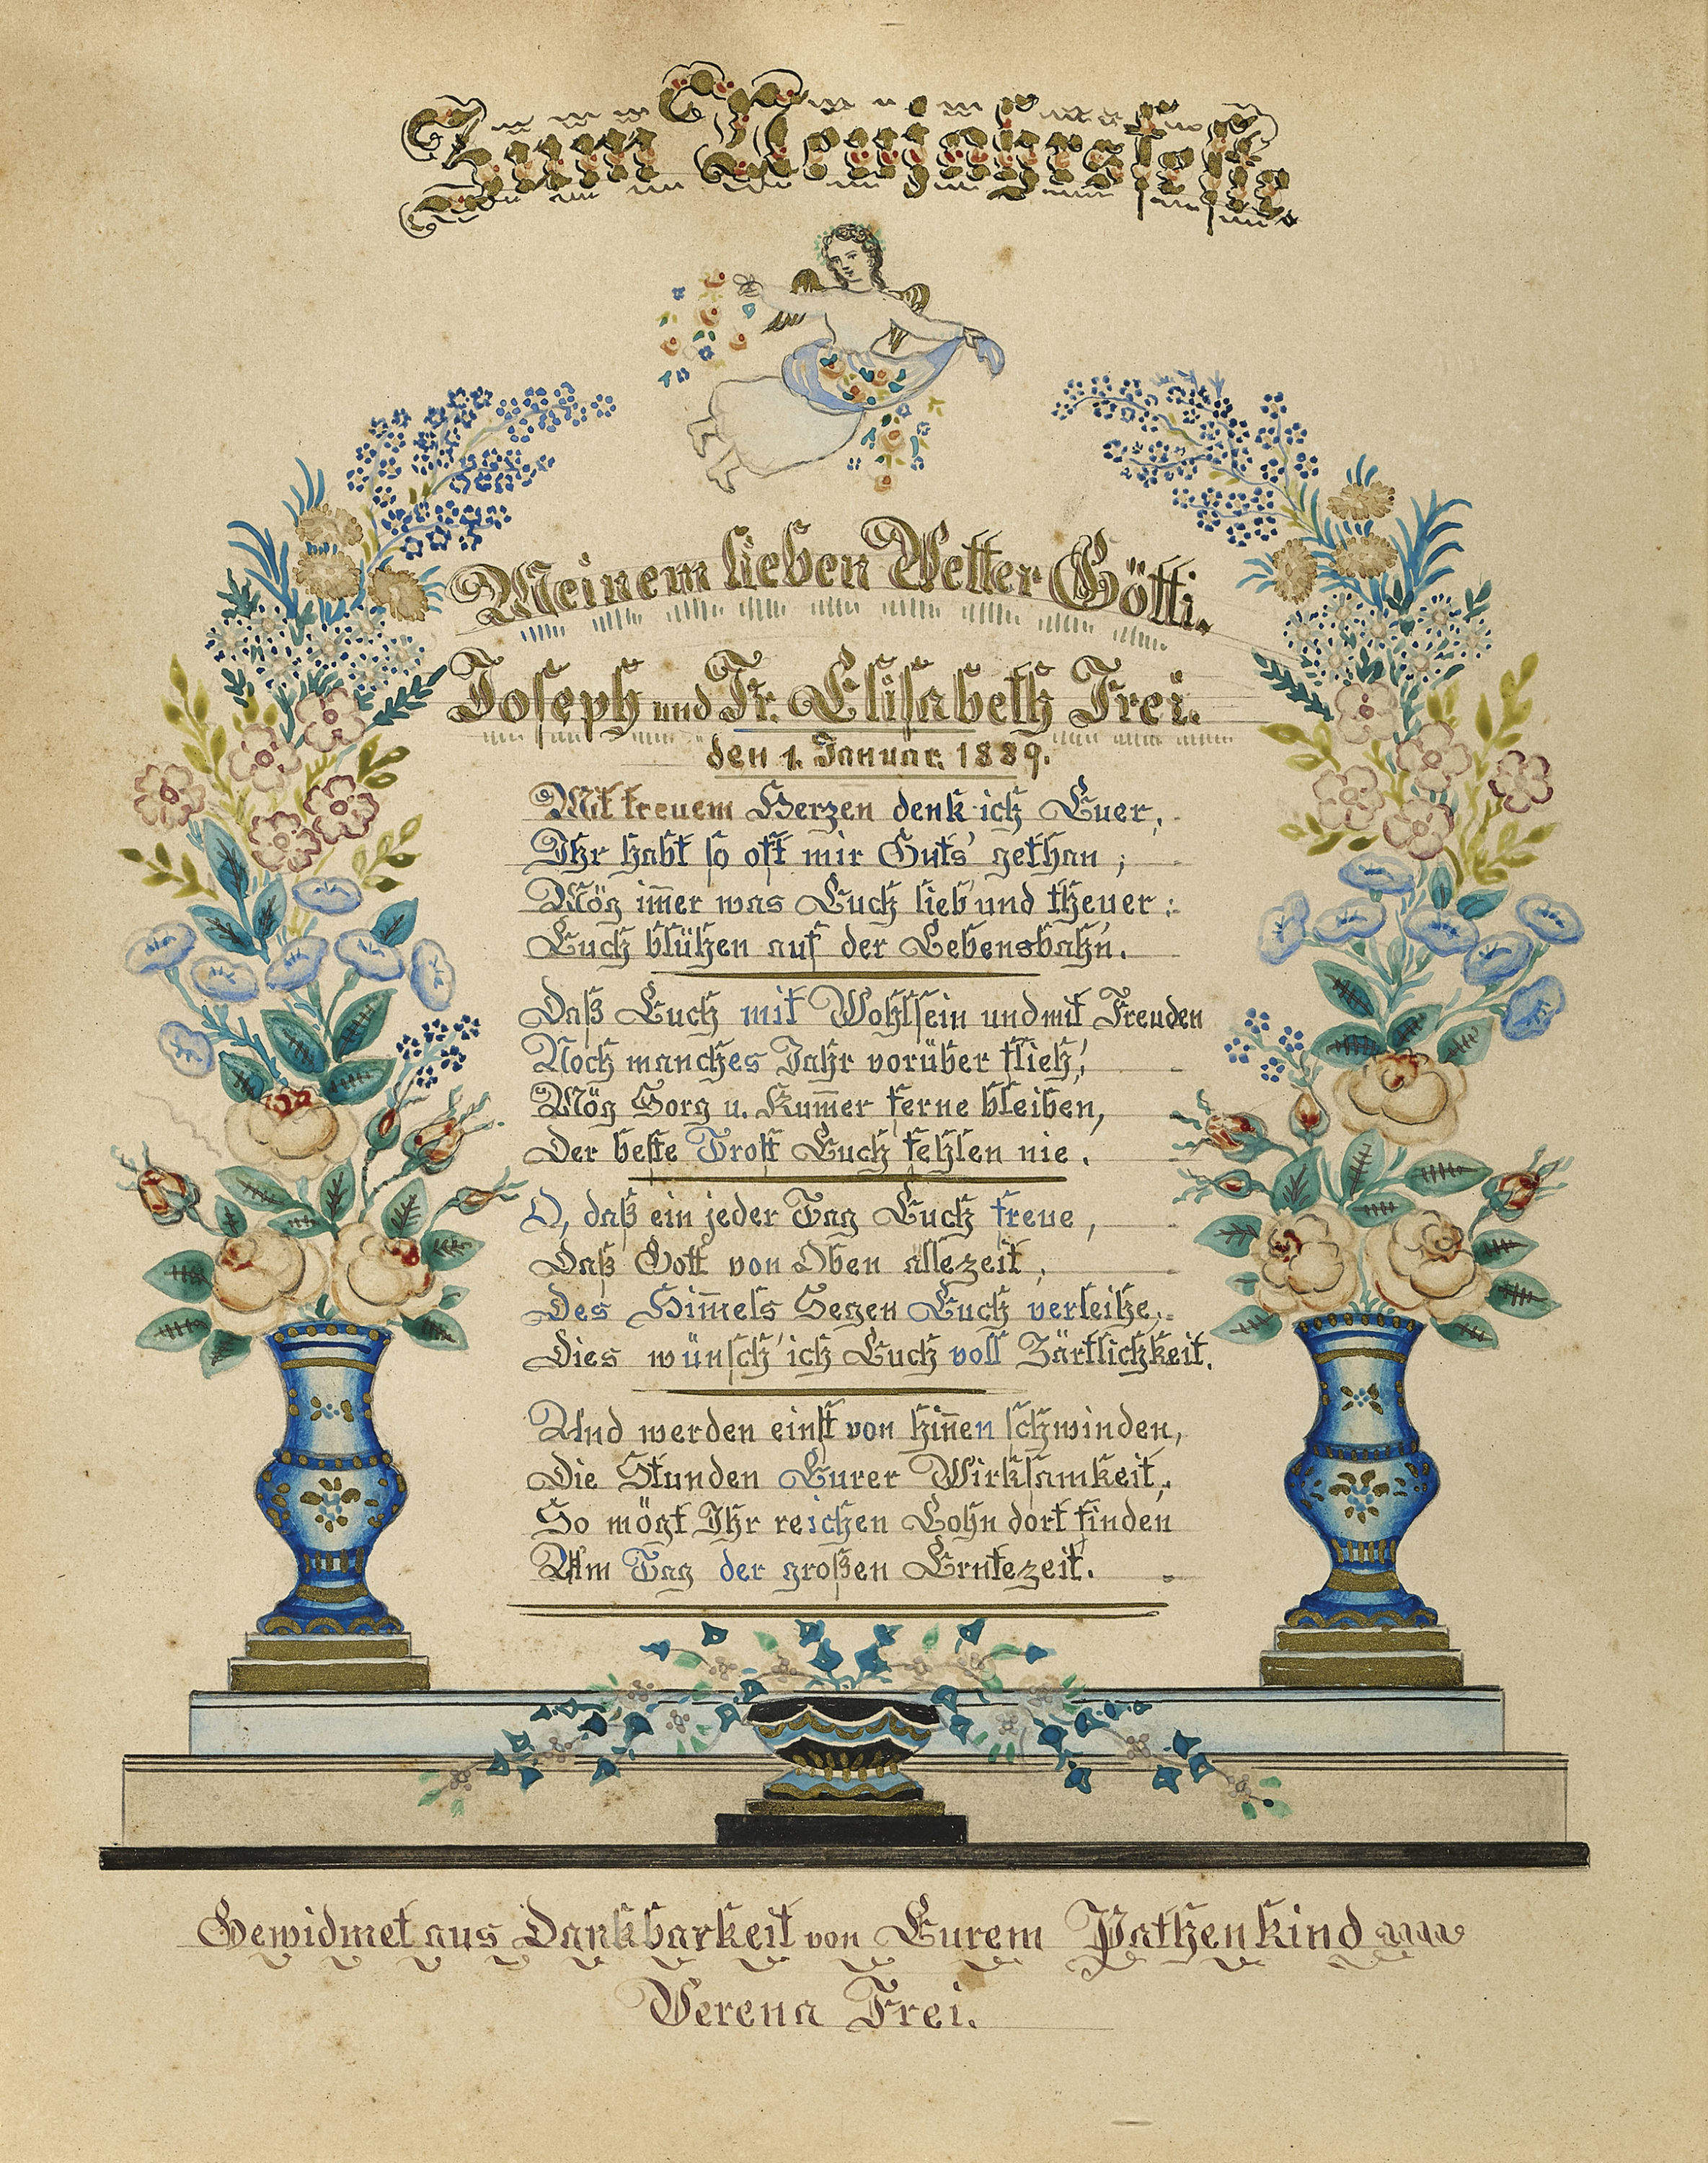 Zum Neujahrsfeste
Meinem lieben Vetter Götti.
Joseph und Fr. Elisabeth Frei.
den 1. Januar. 1889.
Mit treuem Herzen denk ich Euer,
Ihr habt so oft mir Guts' gethan,
Mög im̅er was Euch lieb' und theuer:
Euch blühen auf der Lebensbahn.
Daß Euch mit Wohlsein und mit Freuden
Noch manches Jahr vorüber flieh',
Mög Sorg u. Kum̅er ferne bleiben,
Der beste Trost Euch fehlen nie.
O, daß ein jeder Tag Euch freue,
Daß Gott von Oben allezeit,
Des Him̅els Segen Euch verleihe,
Dies wünsch' ich Euch voll Zärtlichkeit.
Und werden einst von hin̅en schwinden,
Die Stunden Eurer Wirksamkeit,
So mögt Ihr reichen Lohn dort finden
Am Tag der großen Erntezeit.
Gewidmet aus Dankbarkeit von Eurem Pathenkind
Verena Frei.